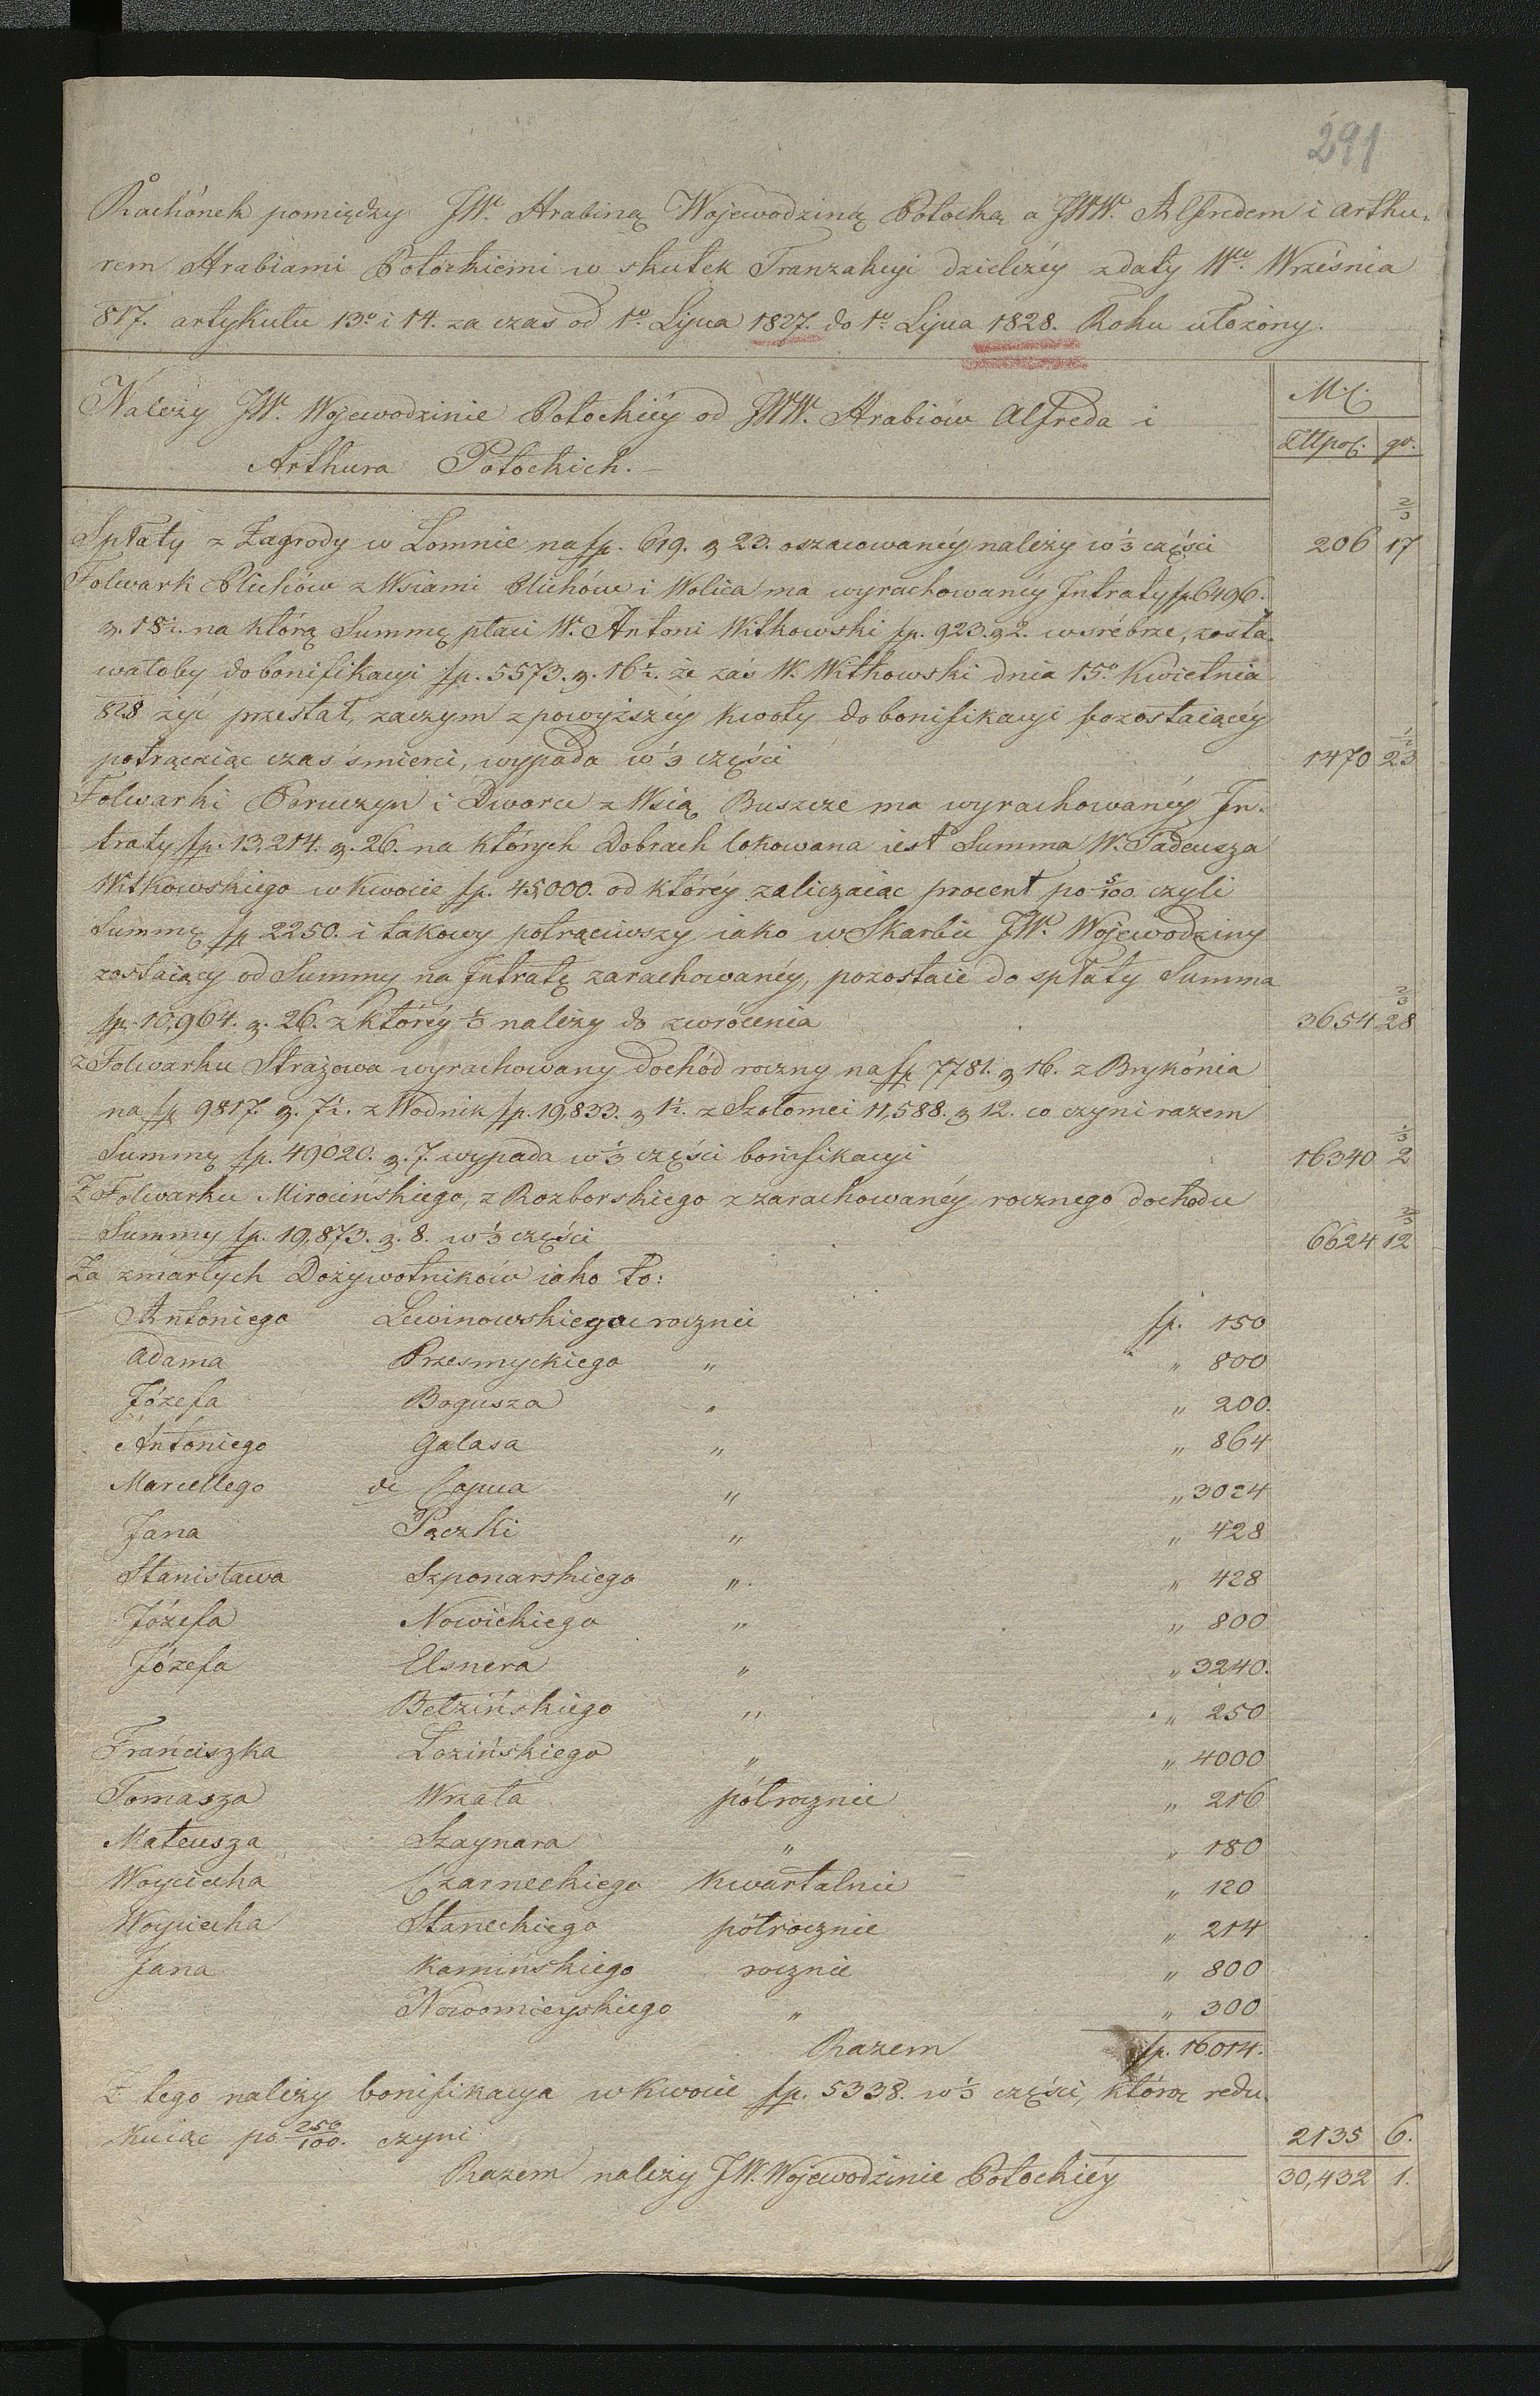 291
Rachónek pomiędzy JW. Hrabiną Wojewodziną Potocką a JWW. Alfredem i Arthu-
rem Hrabiami Potockiemi w skutek Tranzakcyi dzielczéy z daty 11go Września
817. artykułu 13o i 14. za czas od 1o Lipca 1827. do 1o Lipca 1828. Roku ułożony.
Należy JW. Wojewodzinie Potockiéy od JWW. Hrabiów Alfreda i
Arthura Potockich. —
M.C.
Złlpol. gr.
Spłaty z Zagrody w Łomnie na fp. 619. g 23. oszacowanéy należy w 1/3 części 206 17 2/3
Folwark Pluhów z Wsiami Pluhów i Wolica ma wyrachowanéy Intraty fp 6496.
g. 18 1/2. na którą Summę płaci W. Antoni Witkowski fp. 923. g 2. w srébrze, zosta-
wałoby do bonifikacyi fp. 5573. g. 16 1/2. że zaś W. Witkowski dnia 15o Kwietnia
828 żyć przestał, zaczym z powyższéy kwoty do bonifikacyi pozostaiącéy
potrącaiąc czas śmierci, wypada w 1/3 części 1470 23 1/2
Folwarki Poruczyn i Dworce z Wsią Buszcze ma wyrachowanéy In-
traty fp. 13,214. g. 26. na których Dobrach lokowana iest Summa W. Tadeusza
Witkowskiego w kwocie fp. 45,000. od któréy zaliczaiąc procent po 5/100 czyli
Summę fp 2250. i takowy potrąciwszy iako w Skarbie JW. Wojewodziny
zostaiący od Summy na Intratę zarachowanéy, pozostaie do spłaty Summa
fp. 10,964. g. 26. z któréy 1/3 należy do zwrócenia 3654 28 2/3
z Folwarku Strażowa wyrachowany dochód roczny na fp 7781. g 16. z Brykónia
na fp 9817. g. 7 1/2. z Wodnik fp. 19,833. g 1 1/2. z Szołomei 11,588. g 12. co czyni razem
Summę fp. 49020. g. 7. wypada w 1/3 części bonifikacyi 16340 2 1/3
Z Folwarku Mirocińskiego, z Rozborskiego z zarachowanéy rocznego dochodu
Summy fp. 19,873. g. 8. w 1/3 części 6624 12 2/3
Za zmarłych Dożywotników iako to:
Antoniego Lewinowskiego rocznie fp. 150
Adama Przesmyckiego „ „ 800
Józefa Bogusza „ „ 200.
Antoniego Galasa „ „ 864
Marcellego de Capua „ „ 3024
Jana Pączki „ „ 428
Stanisława Szponarskiego „ „ 428
Józefa Nowickiego „ „ 800
Józefa Elsnera „ „ 3240.
Bełzińskiego „ „ 250
Franciszka Łozińskiego „ „ 4000
Tomasza Wrzata półrocznie „ 216
Mateusza Szaynara „ „ 180
Woyciecha Czarneckiego kwartalnie „ 120
Woyciecha Staneckiego półrocznie „ 214
Jana Kamińskiego rocznie „ 800
Nowomieyskiego „ „ 300
Razem fp. 16014.
Z tego należy bonifikacya w kwocie fp. 5338. w 1/3 części, którą redu-
kuiąc po 250/100. czyni 2135 6.
Razem należy JW. Wojewodzinie Potockiéy 30,432 1.